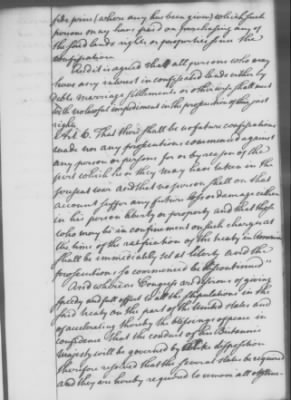 fide price (where any has been given) which such
persons may have paid on purchasing any of
the said lands rights or properties since the
confiscation.
And it is agreed that all persons who may
have any interest in confiscated lands either by
debts, marriage settlements or otherwise, shall meet
with no lawful impediment in the prosecution of their just
rights.
Art. 6. That there shall be no future confiscations
made nor any prosecutions commenced against
any person or persons for or by reason of the
part which he or they may have taken in the
present war and that no person shall on that
account suffer any future loss or damage either
in his person liberty or property and that those
who may be in confinement on such charges at
the time of the ratification of the treaty in America
shall be immediately set at liberty and the
prosecutions so commenced be discontinued"
And whereas Congress are desirous of giving
speedy and full effect to all the stipulations in the
said treaty on the part of the United States and
of accelerating thereby the blessings of peace in
confidence that the conduct of his Britannic
Majesty will be governed by like disposition
therefore resolved that the several states be required
and they are hereby required to remove all